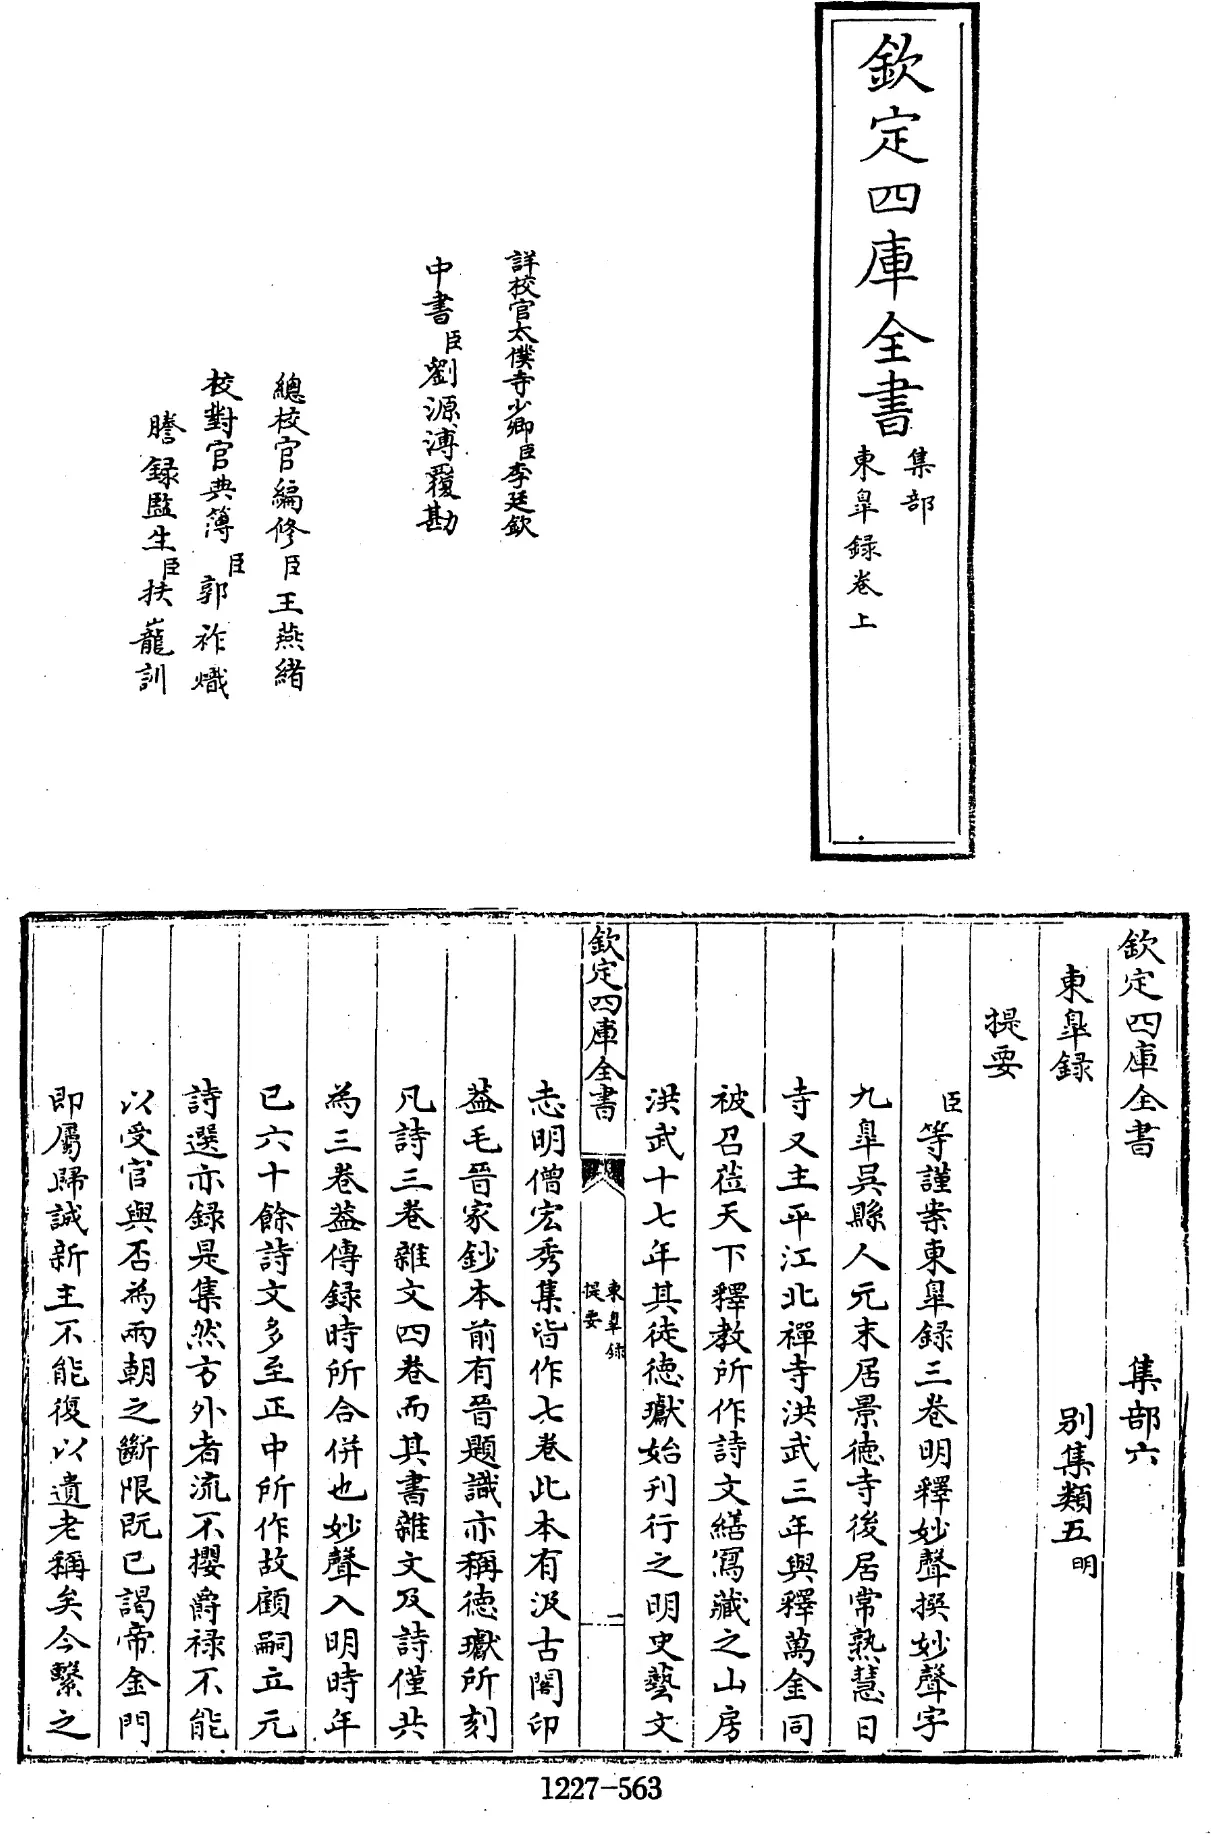 欽定四庫全書
集部
東臯錄卷上
詳校官太僕寺少卿臣李廷欽
中書臣劉源溥覆勘
總校官編修臣王燕緒
校對官典簿臣郭祚熾
謄錄監生臣扶蘢訓
欽定四庫全書 集部六
東臯錄 别集類五明
提要
臣等謹案東臯錄三卷明釋妙聲撰妙聲字
九臯吳縣人元末居景徳寺後居常熟慧日
寺又主平江北禪寺洪武三年與釋萬金同
被召莅天下釋教所作詩文繕寫藏之山房
洪武十七年其徒徳瓛始刊行之明史藝文
欽定四庫全書
東臯錄
提要
一
志明僧宏秀集皆作七卷此本有汲古閣印
葢毛晉家鈔本前有晉題識亦稱徳瓛所刻
凡詩三卷雜文四卷而其書雜文及詩僅共
為三卷葢傳録時所合併也妙聲入明時年
已六十餘詩文多至正中所作故顧嗣立元
詩選亦録是集然方外者流不攖爵祿不能
以受官與否為兩朝之斷限旣已謁帝金門
即屬歸誠新主不能復以遺老稱矣今繫之
1227-563